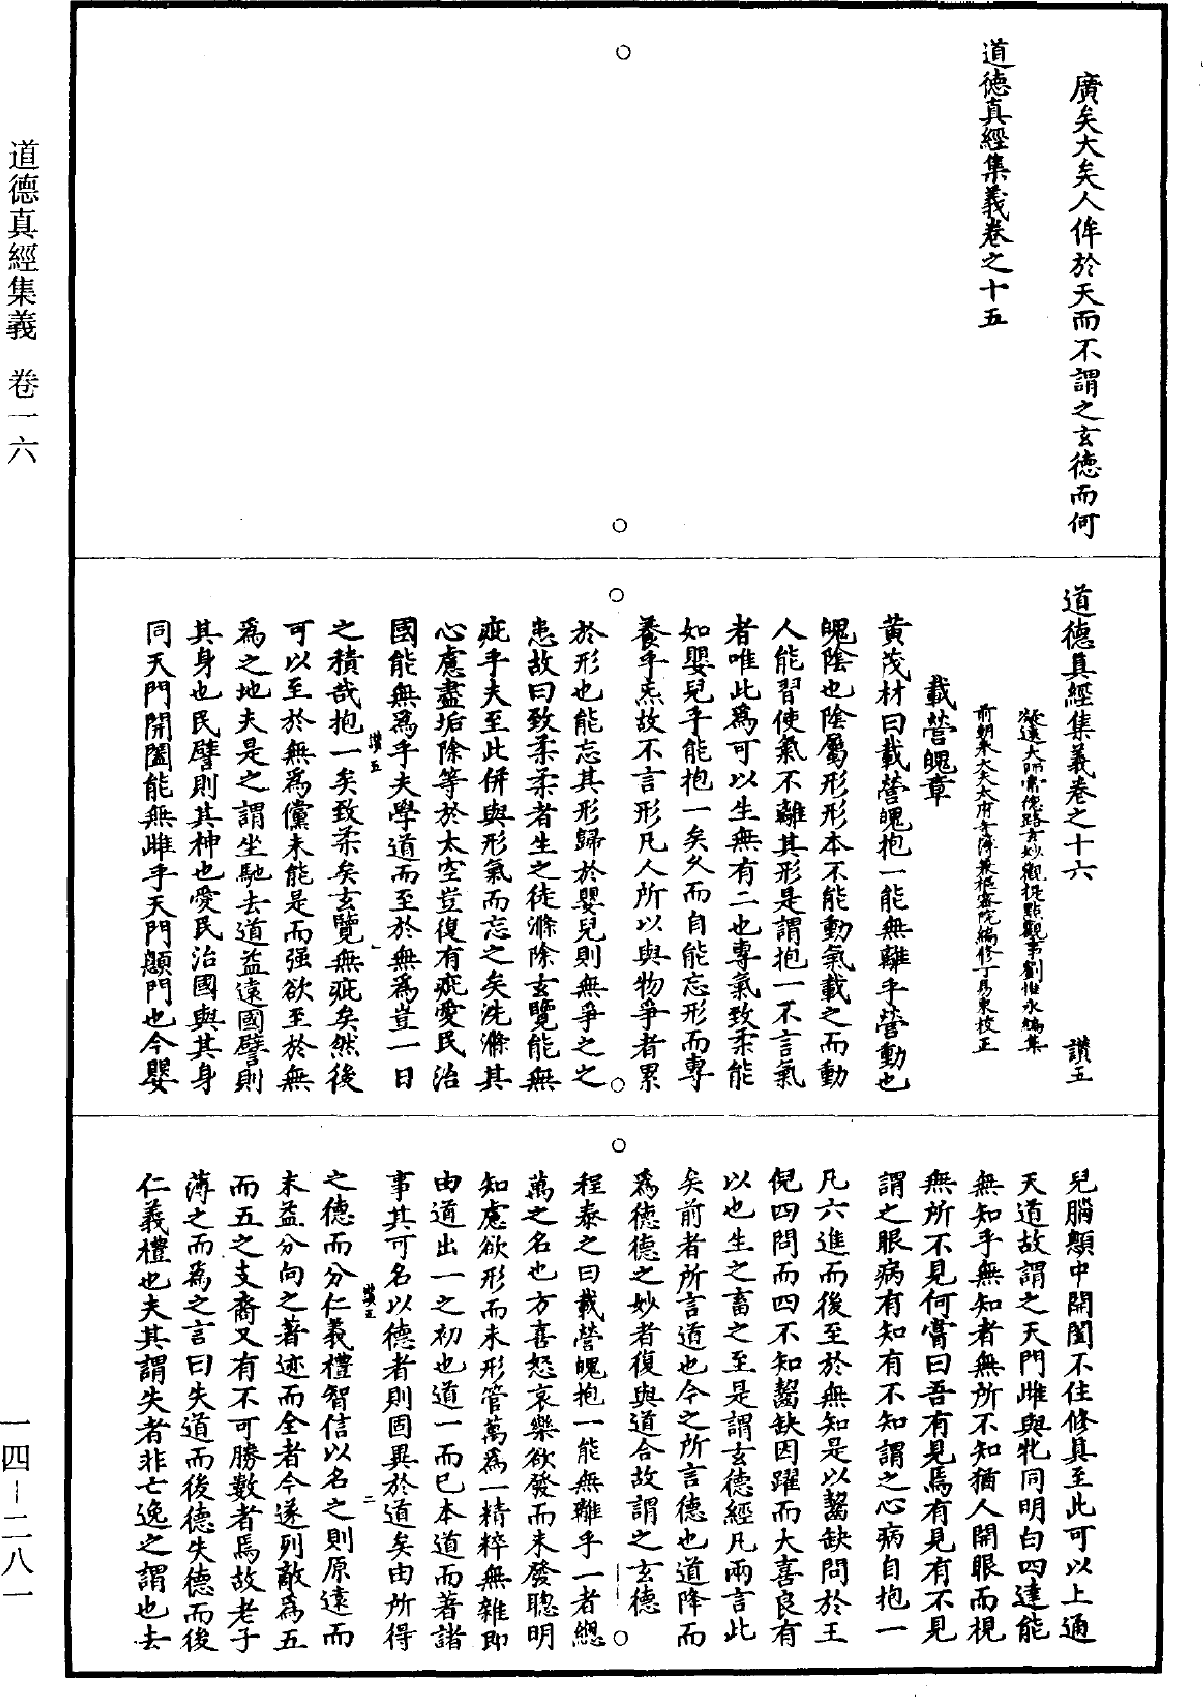 道德真經集義　卷一六
一四－二八一
廣矣大矣人侔於天而不謂之玄德而何
道德真經集義卷之十五
道德真經集義卷之十六　讚五
凝遠大師常德路玄妙觀提點觀事劉惟永編集
前朝奉大夫太府寺簿兼樞密院編修丁易東校正
載營魄章
黃茂材曰載營魄抱一能無離乎營動也
魄陰也陰屬形形本不能動氣載之而動
人能習使氣不離其形是謂抱一不言氣
者唯此爲可以生無有二也專氣致柔能
如嬰兒乎能抱一矣久而自能忘形而專
養乎炁故不言形凡人所以與物爭者累
於形也能忘其形歸於嬰兒則無爭之之
患故曰致柔柔者生之徒滌除玄覽能無
疵乎夫至此併與形氣而忘之矣洗滌其
心慮盡垢除等於太空豈復有疵愛民治
國能無爲乎夫學道而至於無爲豈一日
讚五　一
之積哉抱一矣致柔矣玄覽無疵矣然後
可以至於無爲儻未能是而强欲至於無
爲之地夫是之謂坐馳去道益遠國譬則
其身也民譬則其神也愛民治國與其身
同天門開闔能無雌乎天門顖門也今嬰
兒腦顖中開闔不住修真至此可以上通
天道故謂之天門雌與牝同明白四達能
無知乎無知者無所不知猶人開眼而視
無所不見何嘗曰吾有見焉有見有不見
謂之眼病有知有不知謂之心病自抱一
凡六進而後至於無知是以齧缺問於王
倪四問而四不知齧缺因躍而大喜良有
以也生之畜之至是謂玄德經凡兩言此
矣前者所言道也今之所言德也道降而
爲德德之妙者復與道合故謂之玄德
程泰之曰載營魄抱一能無離乎一者總
萬之名也方喜怒哀樂欲發而未發聰明
知慮欲形而未形管萬爲一精粹無雜即
由道出一之初也道一而已本道而著諸
事其可名以德者則固異於道矣由所得
讚五　二
之德而分仁義禮智信以名之則原遠而
末益分向之著迹而全者今遂列敵爲五
而五之支裔又有不可勝數者焉故老子
薄之而爲之言曰失道而後德失德而後
仁義禮也夫其謂失者非亡逸之謂也去